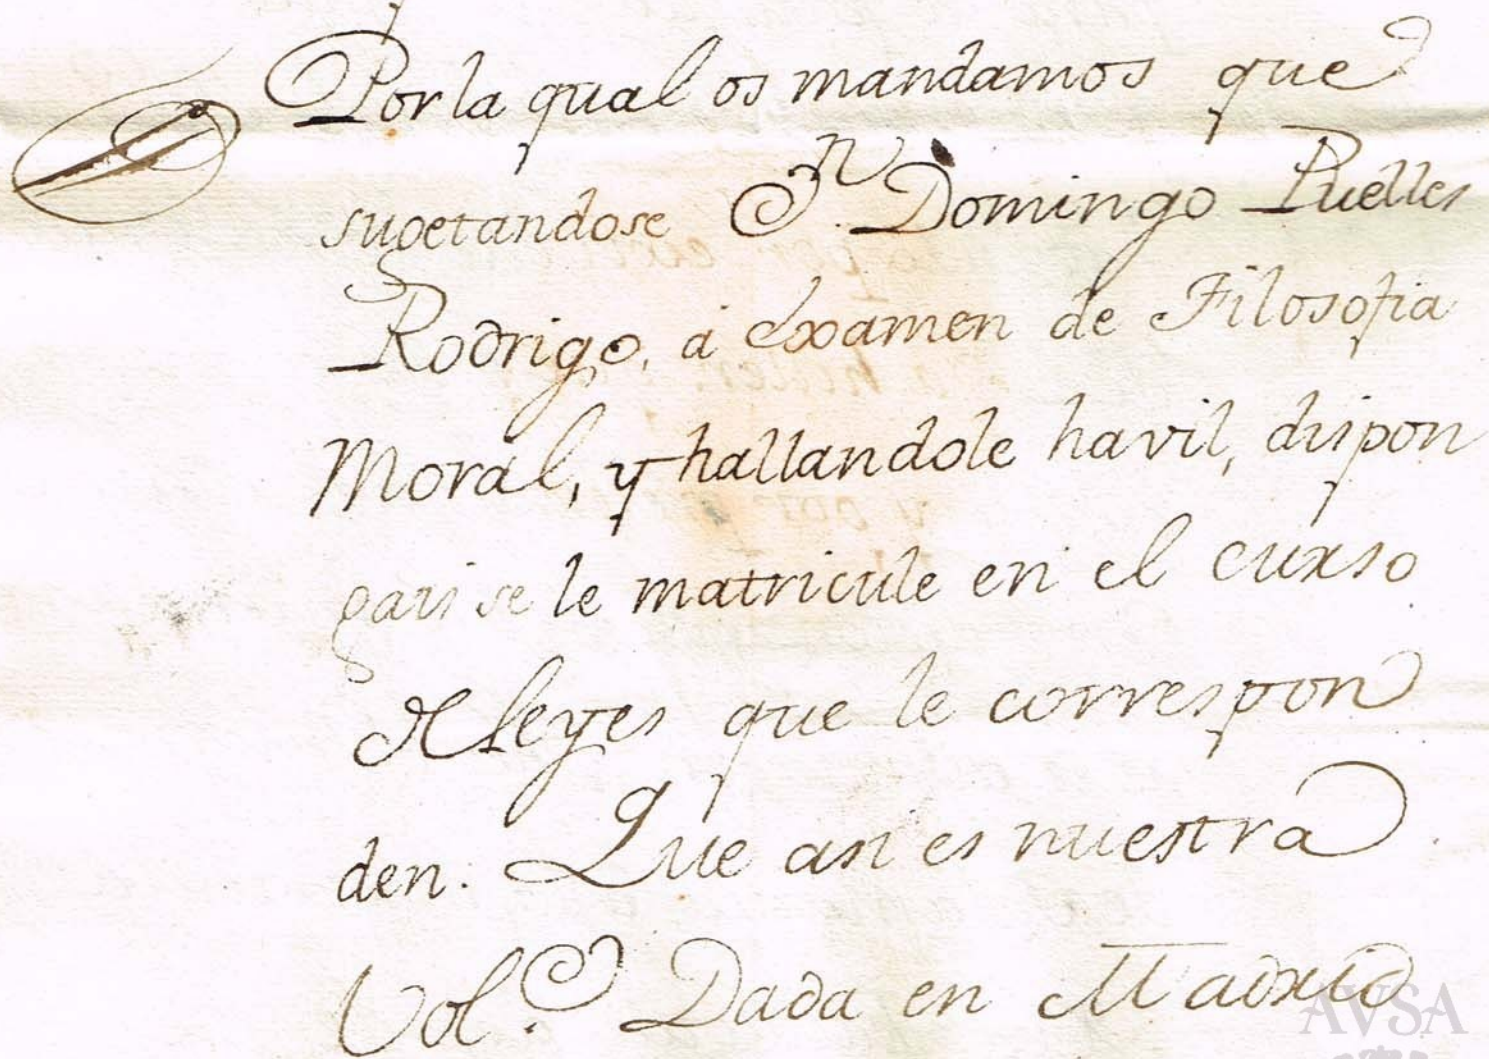 Por la qual os mandamos que
sugetandose Dn. Domingo Puelles
Rodrigo, á examen de Filosofia
Moral, y hallandole havil, dispon
gais se le matricule en el curso
de leyes que le correspon
den. Que asi es nuestra
Vol.d Dada en Madrid
AVSA